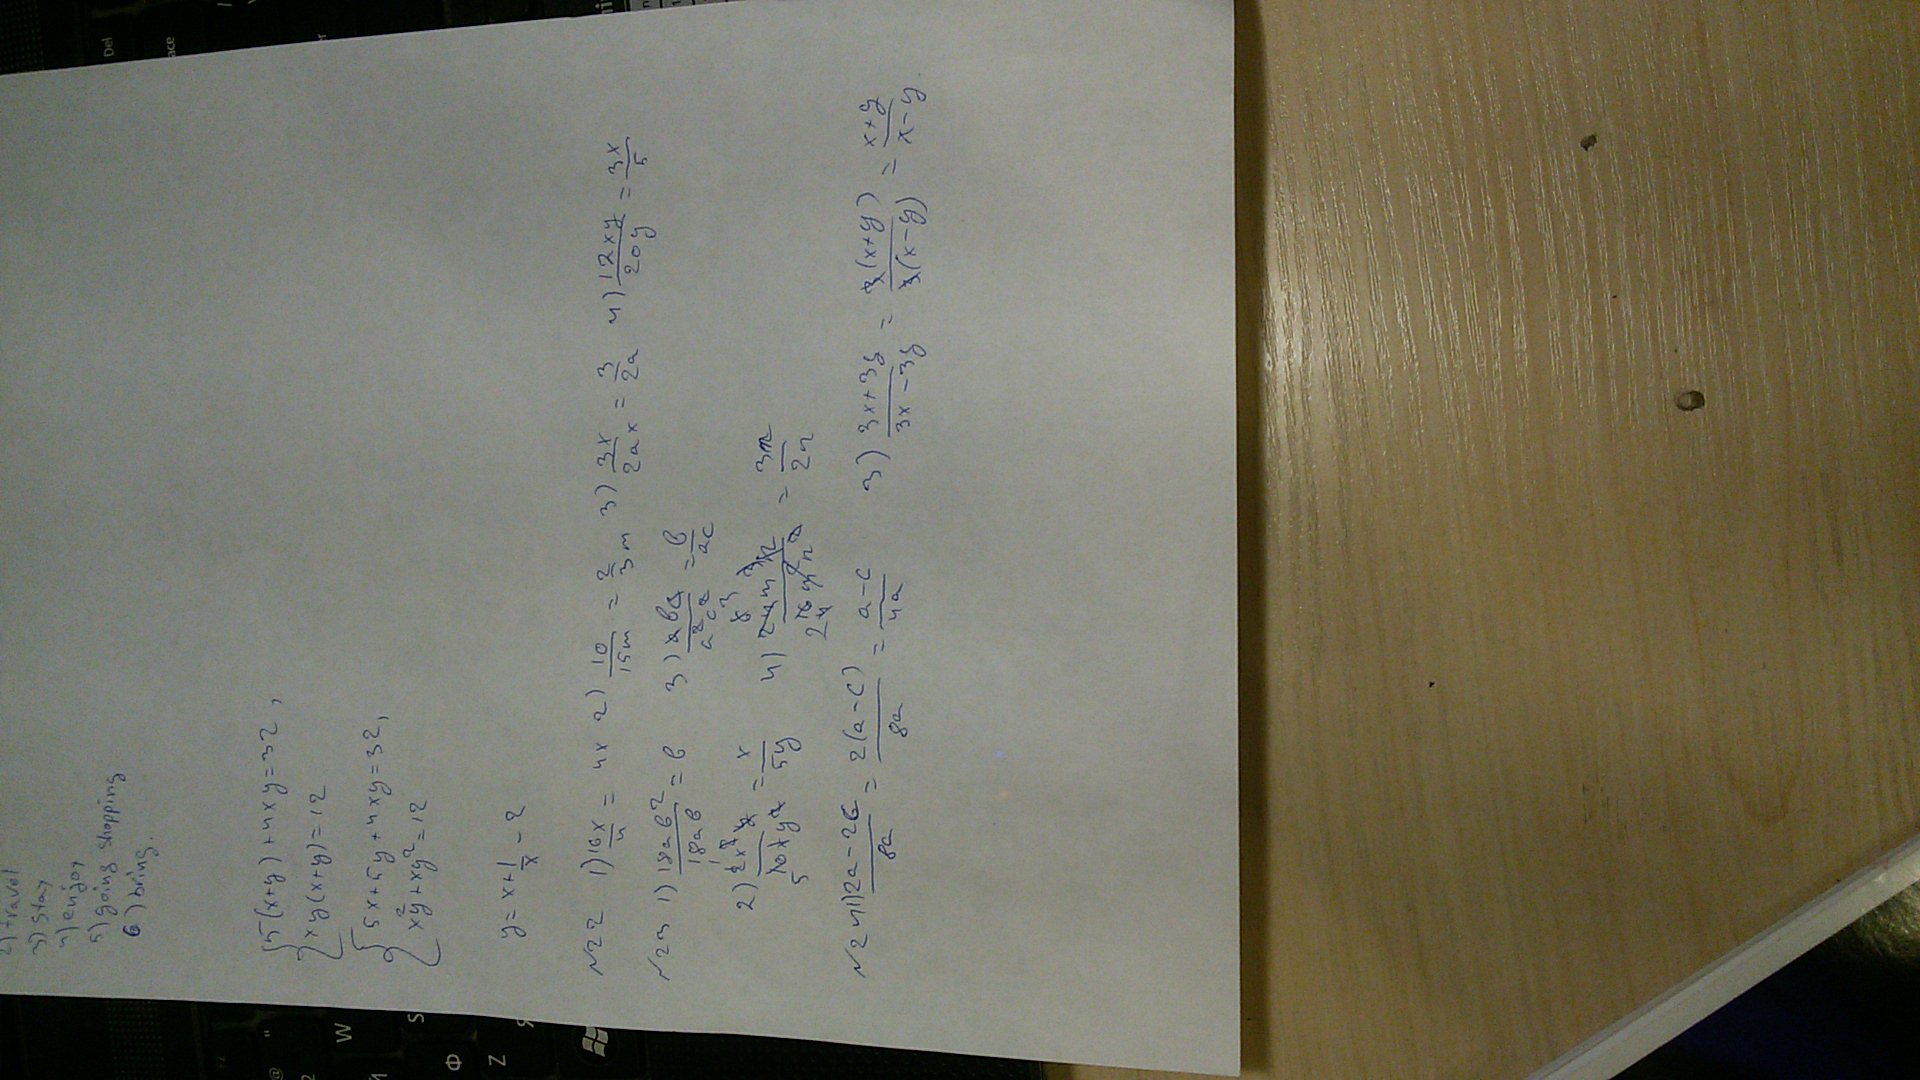 2) travel
3) stay
4) enjoy
5) going shopping
6) bring.
{5(x+y)+4xy=32,
xy(x+y)=12
{5x+5y+4xy=32,
x²y+xy²=12
y=x+1/x-2
№22 1) 16x/4 = 4x 2) 10/15m = 2/3m 3) 3x/2ax = 3/2a 4) 12xy/20y = 3x/5
№23 1) 18ab²/18ab = b 3) abc/a²c² = b/ac
2) 2x²y/10xy² = x/5y 4) 24m³n/16m²n² = 3m/2n
№24 1) 2a-2c/8a = 2(a-c)/8a = a-c/4a 3) 3x+3y/3x-3y = 3(x+y)/3(x-y) = x+y/x-y
Del
W
S
Ф
Z
Я